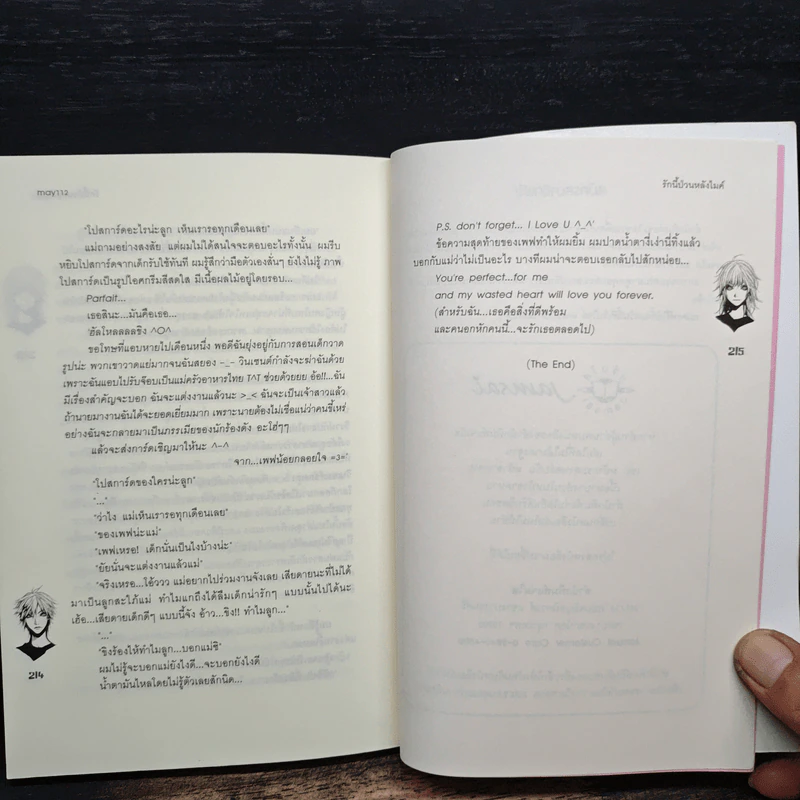 may112
"โปสการ์ดอะไรน่ะลูก เห็นเรารอทุกเดือนเลย"
แม่ถามอย่างสงสัย แต่ผมไม่ได้สนใจจะตอบอะไรทั้งนั้น ผมรีบ
หยิบโปสการ์ดจากเด็กรับใช้ทันที ผมรู้สึกว่ามือตัวเองสั่นๆ ยังไงไม่รู้ ภาพ
โปสการ์ดเป็นรูปไอศกรีมสีสดใส มีเนื้อผลไม้อยู่โดยรอบ...
Parfait...
เธอสินะ...มันคือเธอ...
'ฮัลโหลลลลชิง ^O^
ขอโทษที่แอบหายไปเดือนหนึ่ง พอดีฉันยุ่งอยู่กับการสอนเด็กวาด
รูปน่ะ พวกเขาวาดแย่มากจนฉันสยอง -_- วินเซนต์กำลังจะฆ่าฉันด้วย
เพราะฉันแอบไปรับจ็อบเป็นแม่ครัวอาหารไทย T^T ช่วยด้วยยย อ้อ!!...ฉัน
มีเรื่องสำคัญจะบอก ฉันจะแต่งงานแล้วนะ >_< ฉันจะเป็นเจ้าสาวแล้ว
ถ้านายมางานฉันได้จะยอดเยี่ยมมาก เพราะนายต้องไม่เชื่อแน่ว่าคนขี้เหร่
อย่างฉันจะกลายมาเป็นภรรเมียของนักร้องดัง อะโฮ่ๆๆ
แล้วจะส่งการ์ดเชิญมาให้นะ ^-^
จาก...เพฟน้อยกลอยใจ =3='
"โปสการ์ดของใครน่ะลูก"
"..."
"ว่าไง แม่เห็นเรารอทุกเดือนเลย"
"ของเพฟน่ะแม่"
"เพฟเหรอ! เด็กนั่นเป็นไงบ้างน่ะ"
"ยัยนั่นจะแต่งงานแล้วแม่"
"จริงเหรอ...โอ้ววว แม่อยากไปร่วมงานจังเลย เสียดายนะที่ไม่ได้
มาเป็นลูกสะใภ้แม่ ทำไมแกถึงได้ลืมเด็กน่ารักๆ แบบนั้นไปได้นะ
เฮ้อ...เสียดายเด็กดีๆ แบบนี้จัง อ้าว...ชิง!! ทำไมลูก..."
"..."
"ชิงร้องไห้ทำไมลูก...บอกแม่ซิ"
ผมไม่รู้จะบอกแม่ยังไงดี...จะบอกยังไงดี
น้ำตามันไหลโดยไม่รู้ตัวเลยสักนิด...
214
รักนี้ป่วนหลังไมค์
P.S. don't forget... I Love U ^_^'
ข้อความสุดท้ายของเพฟทำให้ผมยิ้ม ผมปาดน้ำตางี่เง่านี่ทิ้งแล้ว
บอกกับแม่ว่าไม่เป็นอะไร บางทีผมน่าจะตอบเธอกลับไปสักหน่อย...
You're perfect...for me
and my wasted heart will love you forever.
(สำหรับฉัน...เธอคือสิ่งที่ดีพร้อม
และคนอกหักคนนี้...จะรักเธอตลอดไป)
(The End)
215